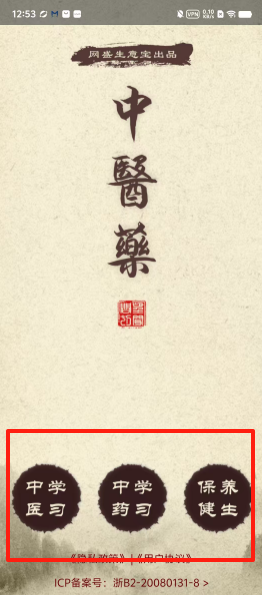 12:53
VPN
0.10 KB/s
网盛生意宝出品
中
醫
藥
中学
医习
中学
药习
保养
健生
《隐私政策》|《用户协议》
ICP备案号：浙B2-20080131-8 >